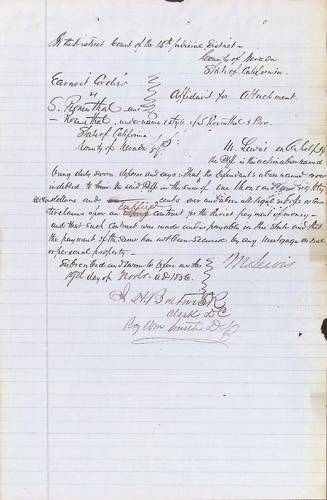 In the District Court of the 14th Judicial District -
County of Nevada
State of California.
Earnest
vs
Affidavit for Attachment.
S. Rosenthal and
- Rosenthal, under name & style of S Rosenthal & Bro.
State of California
County of Nevada
M. Lewis on
the Plff in this action above named
being duly sworn deposes and says: That the Defendants above named are
indebted to him the said Plff in the sum of One thousand and eighty
dollars and cents over and above all legal set-offs or coun-
ter claims upon an contract for the direct payment of money -
and that such contract was made & was payable in this State and that
the payment of the same has not been secured by any Mortgage on real
or personal property -
Subscribed and sworn to before me this
19th day of Novbr. A.D 1856.
M Lewis
Clerk D C
By Wm Smith D C